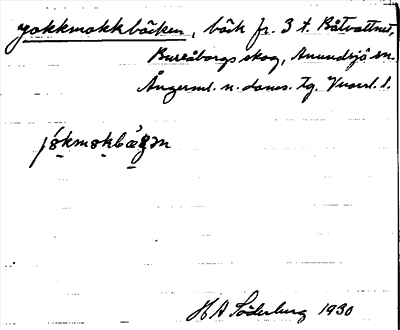 Jokkmokkbäcken, bäck fr. 3 t. Båtvattnet,
Bureåborgs skog, Anundsjö sn.
Ångerml. n. doms. tg. Vuxl. l.
jókmokbægɔn
H A Söderberg 1930